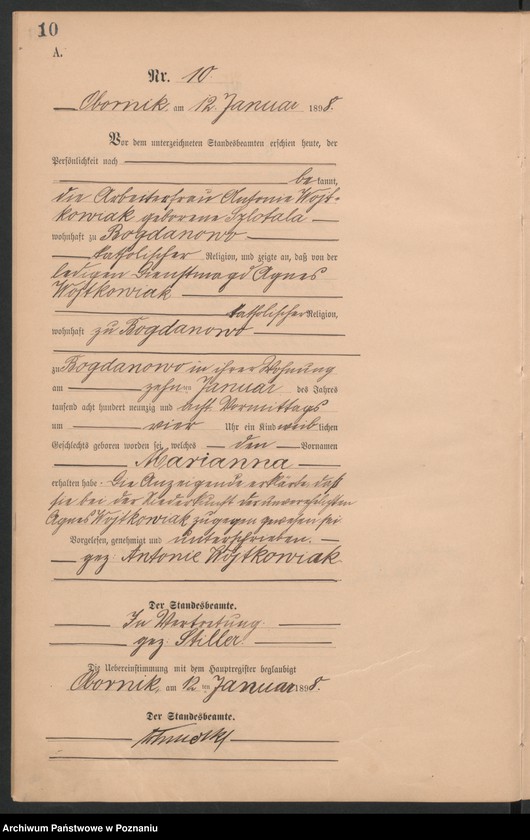 10
A.
Nr. 10
Obornik, am 12. Januar 1898.
Vor dem unterzeichneten Standesbeamten erschien heute, der
Persönlichkeit nach
bekannt,
die Arbeiterfrau Antonie Wojt-
kowiak geborene Szlotala
wohnhaft zu Bogdanowo
katholischer Religion, und zeigte an, daß von der
ledigen Dienstmagd Agnes
Wojtkowiak
katholischer Religion,
wohnhaft zu Bogdanowo
zu Bogdanowo in ihrer Wohnung
am zehnten Januar des Jahres
tausend acht hundert neunzig und acht Vormittags
um vier Uhr ein Kind weiblichen
Geschlechts geboren worden sei, welches den Vornamen
Marianna
erhalten habe. Die Anzeigende erklärte daß
sie bei der Niederkunft der unverehelichten
Agnes Wojtkowiak zugegen gewesen sei
Vorgelesen, genehmigt und unterschrieben.
gez. Antonie Wojtkowiak
Der Standesbeamte.
In Vertretung
gez. Stiller
Die Uebereinstimmung mit dem Hauptregister beglaubigt
Obornik, am 12ten Januar 1898.
Der Standesbeamte.
Archiwum Państwowe w Poznaniu